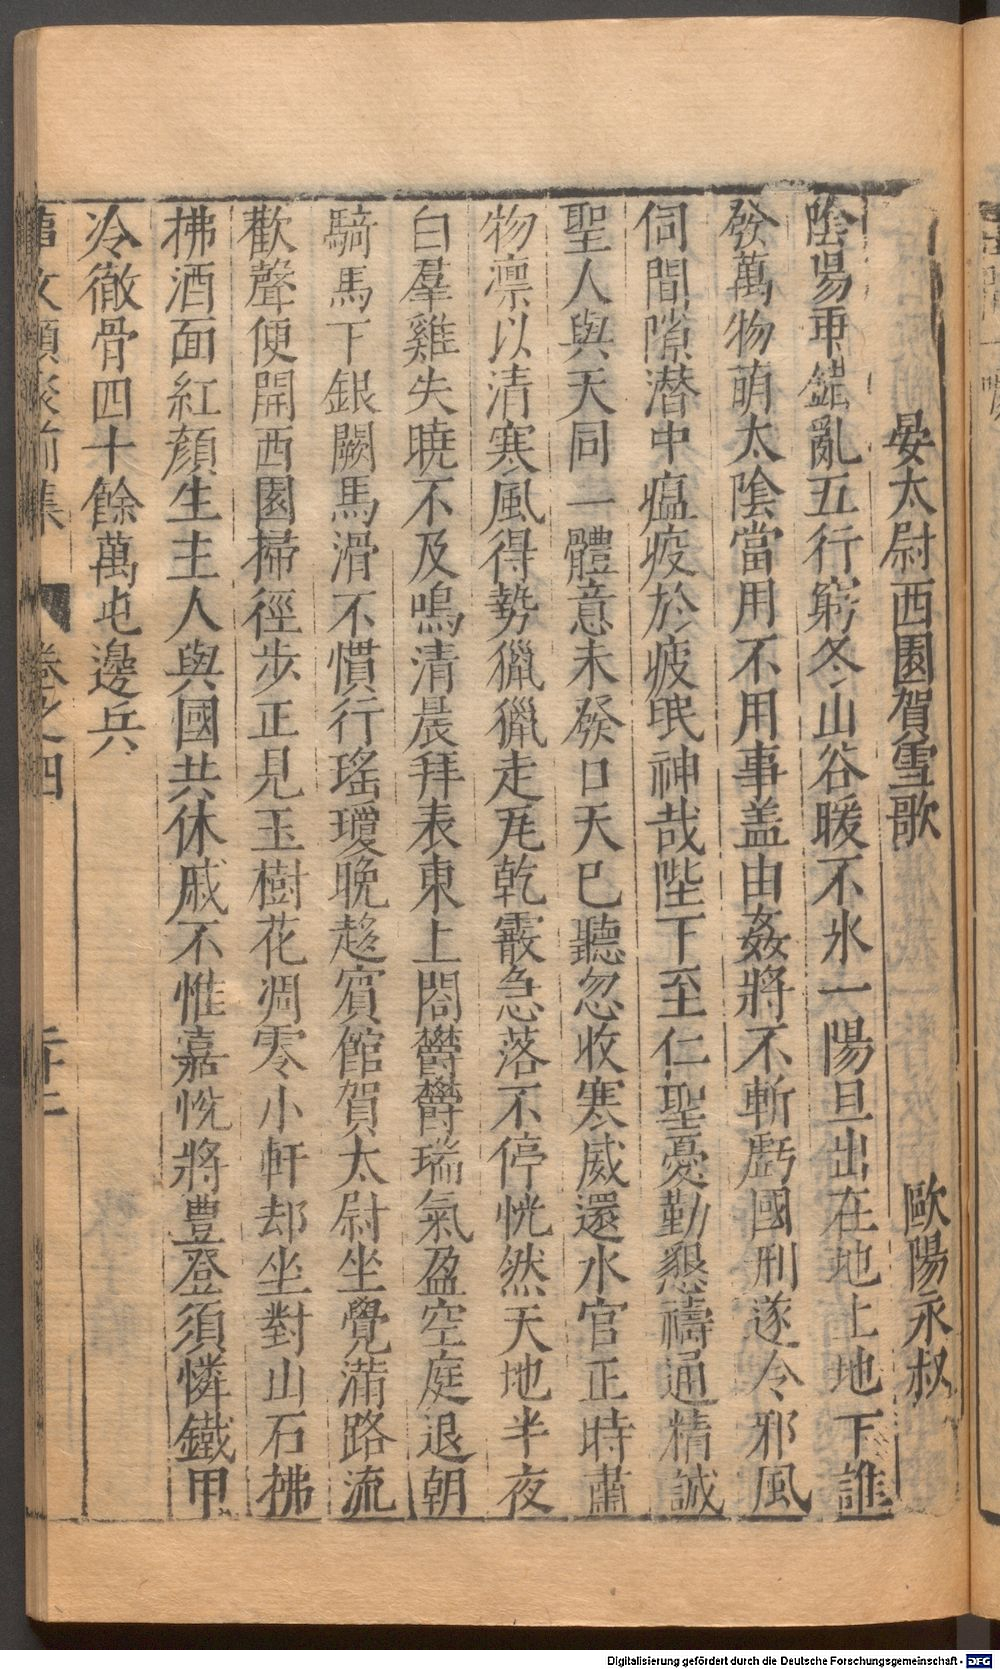 晏太尉西園賀雪歌　歐陽永叔
陰陽乖錯亂五行窮冬山谷暖不氷一陽旦出在地上地下誰
發萬物萌太陰當用不用事盖由姦將不斬虧國刑遂令邪風
伺間隙潜中瘟疫於疲氓神哉陛下至仁聖憂勤懇禱通精誠
聖人與天同一體意未發口天已聽忽收寒威還水官正時肅
物凛以清寒風得勢獵獵走瓦乾霰急落不停恍然天地半夜
白羣雞失曉不及鳴清晨拜表東上閤欝欝瑞氣盈空庭退朝
騎馬下銀闕馬滑不慣行瑤瓊晚趍賓館賀太尉坐覺滿路流
歡聲便開西園掃徑步正見玉樹花凋零小軒却坐對山石拂
拂酒面紅顏生主人與國共休戚不惟嘉恱將豊登須憐鐵甲
冷徹骨四十餘萬屯邊兵
事文類聚前集　卷之四
Digitalisierung gefördert durch die Deutsche Forschungsgemeinschaft - DFG